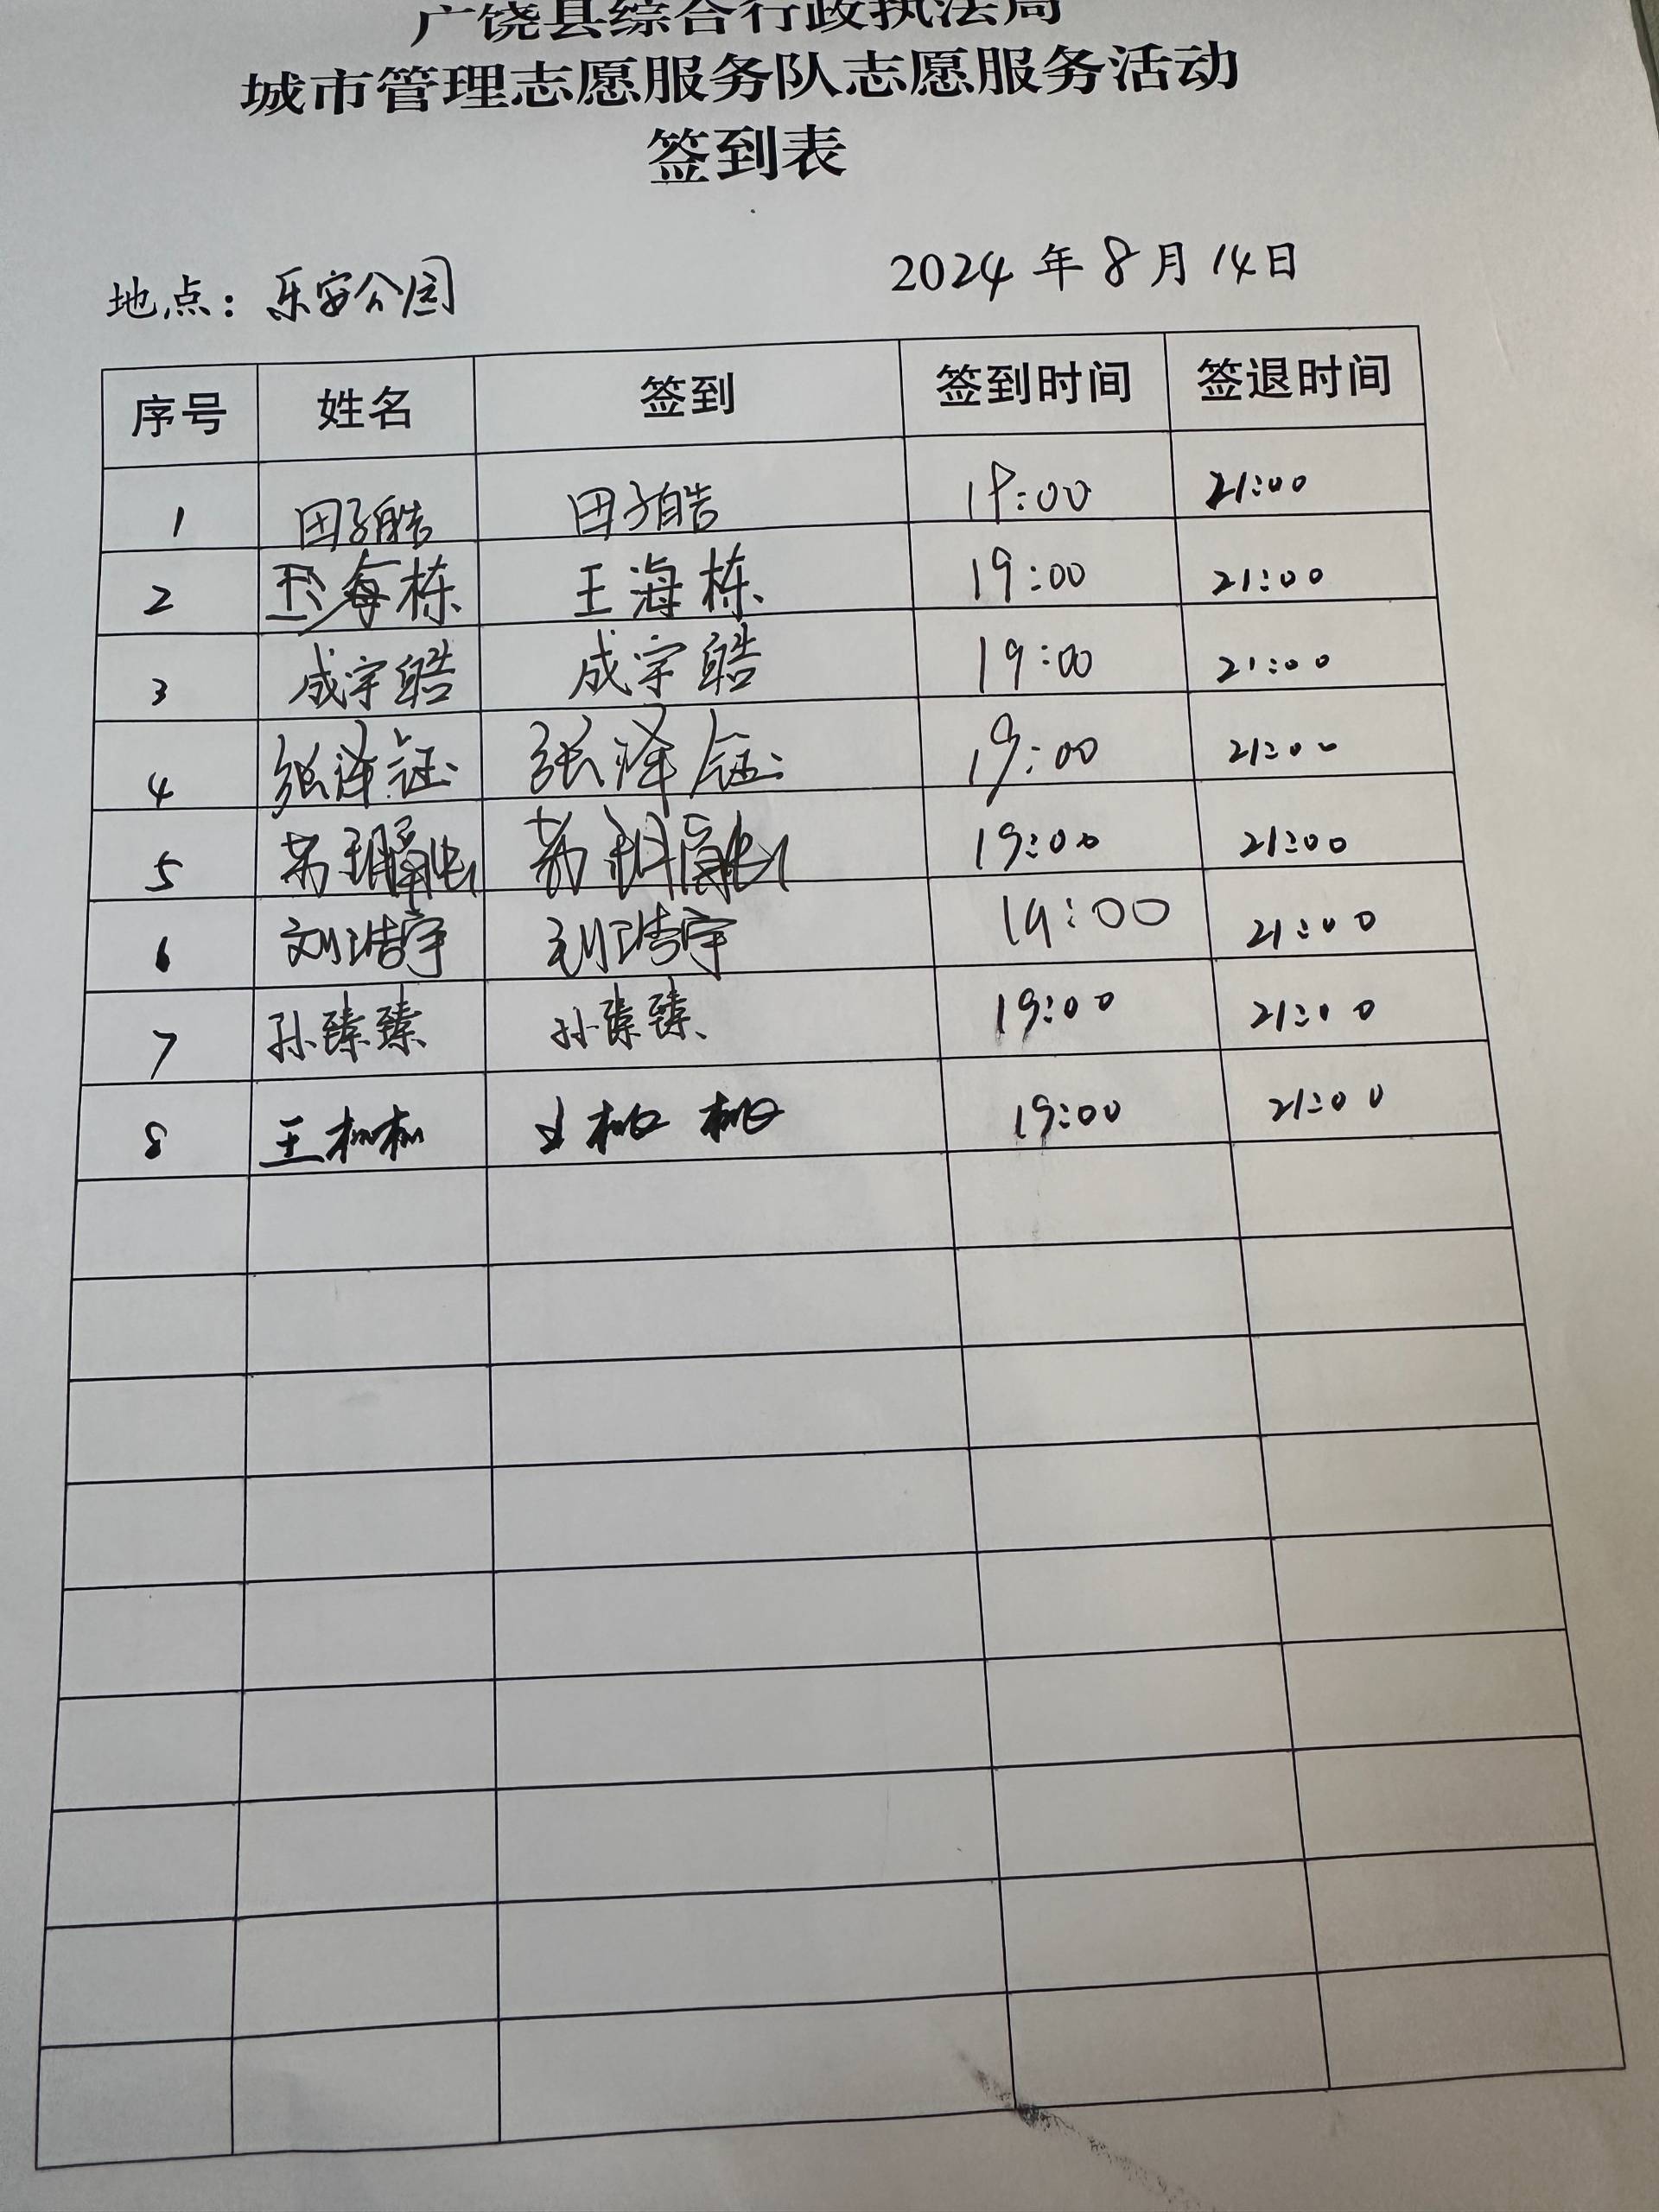 广饶县综合行政执法局
城市管理志愿服务队志愿服务活动
签到表
地点：乐安公园 2024年8月14日
序号 姓名 签到 签到时间 签退时间
1 田子皓 田子皓 19:00 21:00
2 王海栋 王海栋 19:00 21:00
3 成宇皓 成宇皓 19:00 21:00
4 张泽钰 张泽钰 19:00 21:00
5 19:00 21:00
6 刘浩宇 刘浩宇 19:00 21:00
7 孙臻臻 孙臻臻 19:00 21:00
8 王 王 19:00 21:00